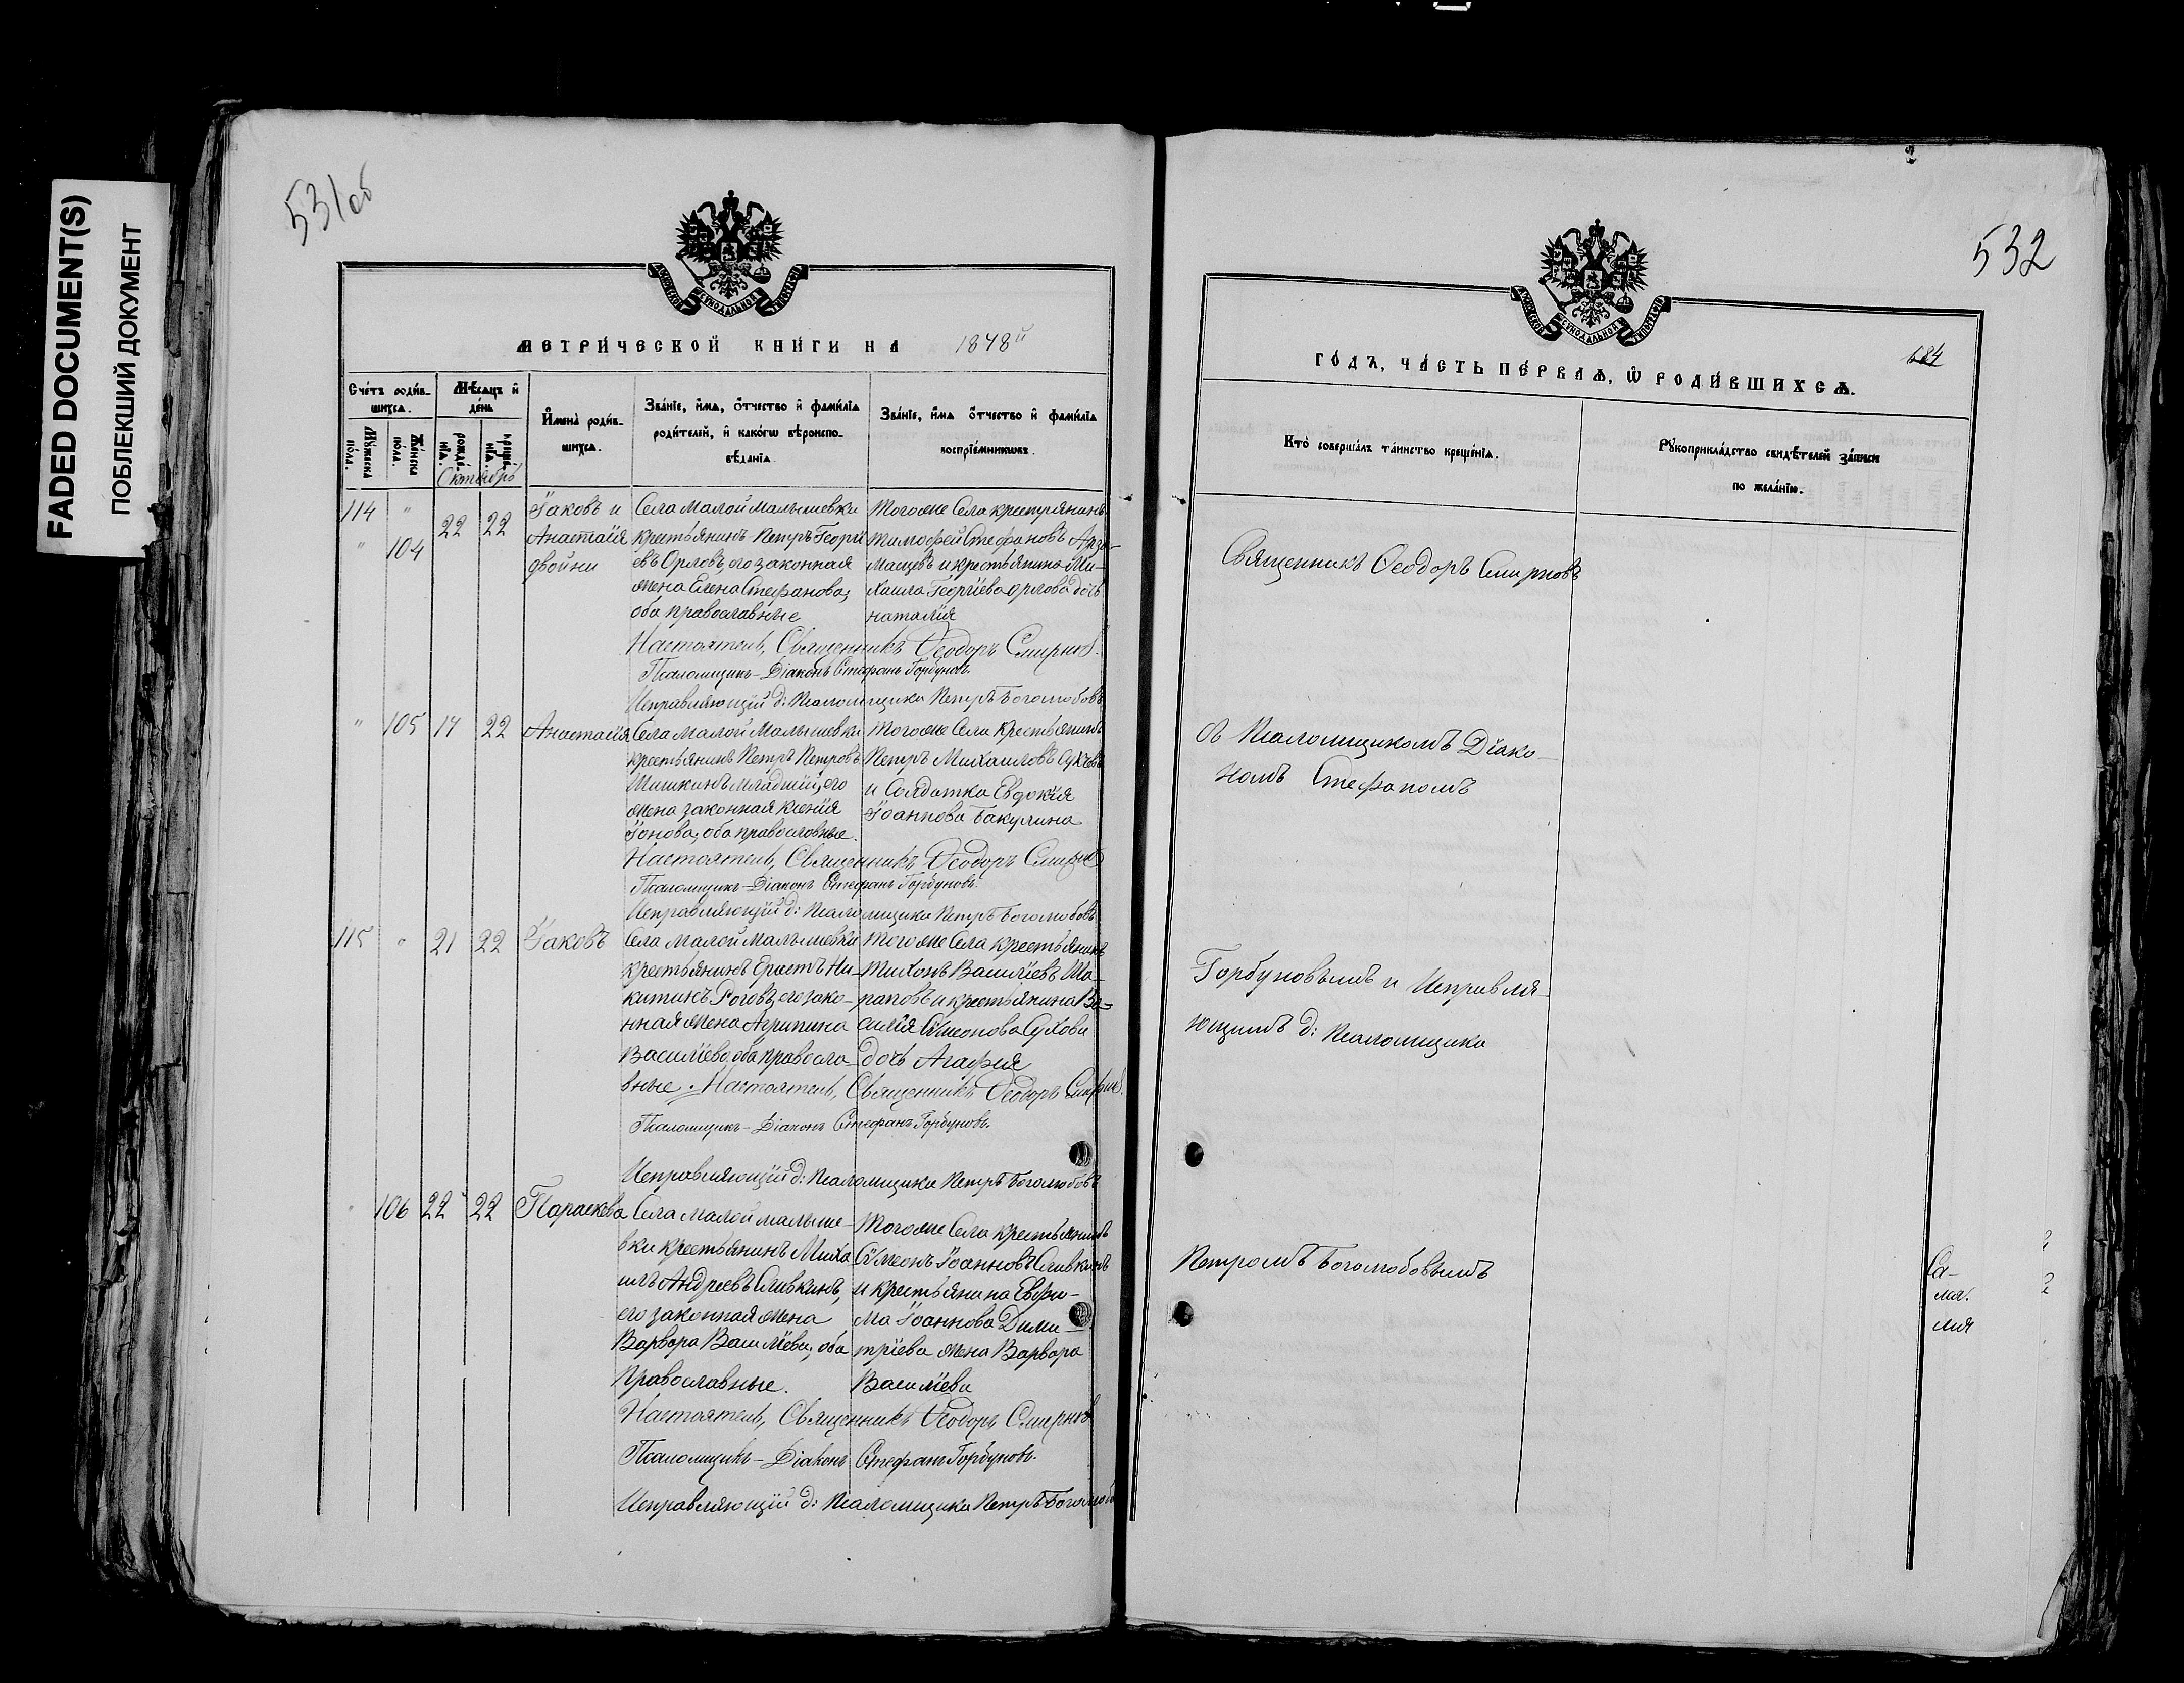 FADED DOCUMENT(S)
ПОБЛЕКШИЙ ДОКУМЕНТ
531об
МЕТРИ́ЧЕСКОЙ КНИ́ГИ НА 1878й
Сче́тъ роди́в-
шихся.
Му́жеска по́ла.
Же́нска по́ла.
Мѣ́сяцъ и҆ де́нь
рожде́нїя.
креще́нїя.
Октябрь
И҆мена̀ роди́в-
шихся.
Зва́нїе, и҆́мѧ, ѻ҆́тчество и҆ фами́лїѧ
роди́телей, и҆ како́гѡ вѣроиспо-
вѣ́данїѧ
Зва́нїе, и҆́мѧ ѻ҆́тчество и҆ фами́лїѧ
воспрїе́мникѡвъ.
114 " 22 22 Їаковъ и
" 104 Анастасія
двойни
Села Малой Малышевки
крестьянинъ Петръ Георгі
евъ Орловъ, его законная
жена Елена Стефанова,
оба православные
Тогоже Села крестьянинъ
Тимофей Стефановъ Арза-
масцевъ и крестьянина Ми-
хаила Георгіева Орлова дочь
наталія
Настоятель, Священникъ Ѳеодоръ Смирновъ.
Псаломщикъ-Діаконъ Стефанъ Горбуновъ.
Исправляющій д: Псаломщика Петръ Боголюбовъ
" 105 17 22 Анастасія
Села Малой Малышевки
крестьянинъ Петръ Петровъ
Мишкинъ младшій, его
жена законная Ксенія
Їонова, оба православные.
Тогоже Села Крестьянинъ
Петръ Михаиловъ Суховъ
и Солдатка Евдокія
Їоаннова Бакулина
Настоятель, Священникъ Ѳеодоръ Смирновъ
Псаломщикъ-Діаконъ Стефанъ Горбуновъ.
Исправляющій д: Псаломщика Петръ Боголюбовъ
115 " 21 22 Їаковъ
Села Малой Малышевки
крестьянинъ Ерастъ Ни-
китинъ Роговъ, его зако-
нная жена Агрипина
Василіева, оба правосла-
вные.
Тогоже Села крестьянинъ
Тихонъ Василіевъ Ша-
раповъ и крестьянина Ва-
силія Сѵмеонова Сухова
дочь Агафія
Настоятель, Священникъ Ѳеодоръ Смирновъ.
Псаломщикъ-Діаконъ Стефанъ Горбуновъ.
Исправляющій д: Псаломщика Петръ Боголюбовъ
" 106 22 22 Параскева
Села Малой малыше-
вки крестьянинъ Миха
илъ Андреевъ Сливкинъ,
его законная жена
Варвара Василіева, оба
Православные.
Тогоже Села крестьянинъ
Сѵмеонъ Їоанновъ Сливкинъ
и крестьянина Евфи-
ма Їоаннова Дими-
тріева жена Варвара
Василіева
Настоятель, Священникъ Ѳеодоръ Смирновъ
Псаломщикъ-Діаконъ Стефанъ Горбуновъ.
Исправляющій д: Псаломщика Петръ Боголюбо
532
684
ГО́ДЪ, ЧА́СТЬ ПЕ́РВАѦ, Ѡ҆ РОДИ́ВШИХСѦ.
Кто̀ соверша́лъ та́инство креще́нїѧ.
Рꙋкоприкла́дство свидѣ́телей за́писи
по жела́нїю.
Священникъ Ѳеодоръ Смирновъ
съ Псаломщикомъ Діако-
номъ Стефаномъ
Горбуновымъ и Исправля-
ющимъ д: Псаломщика
Петромъ Боголюбовымъ